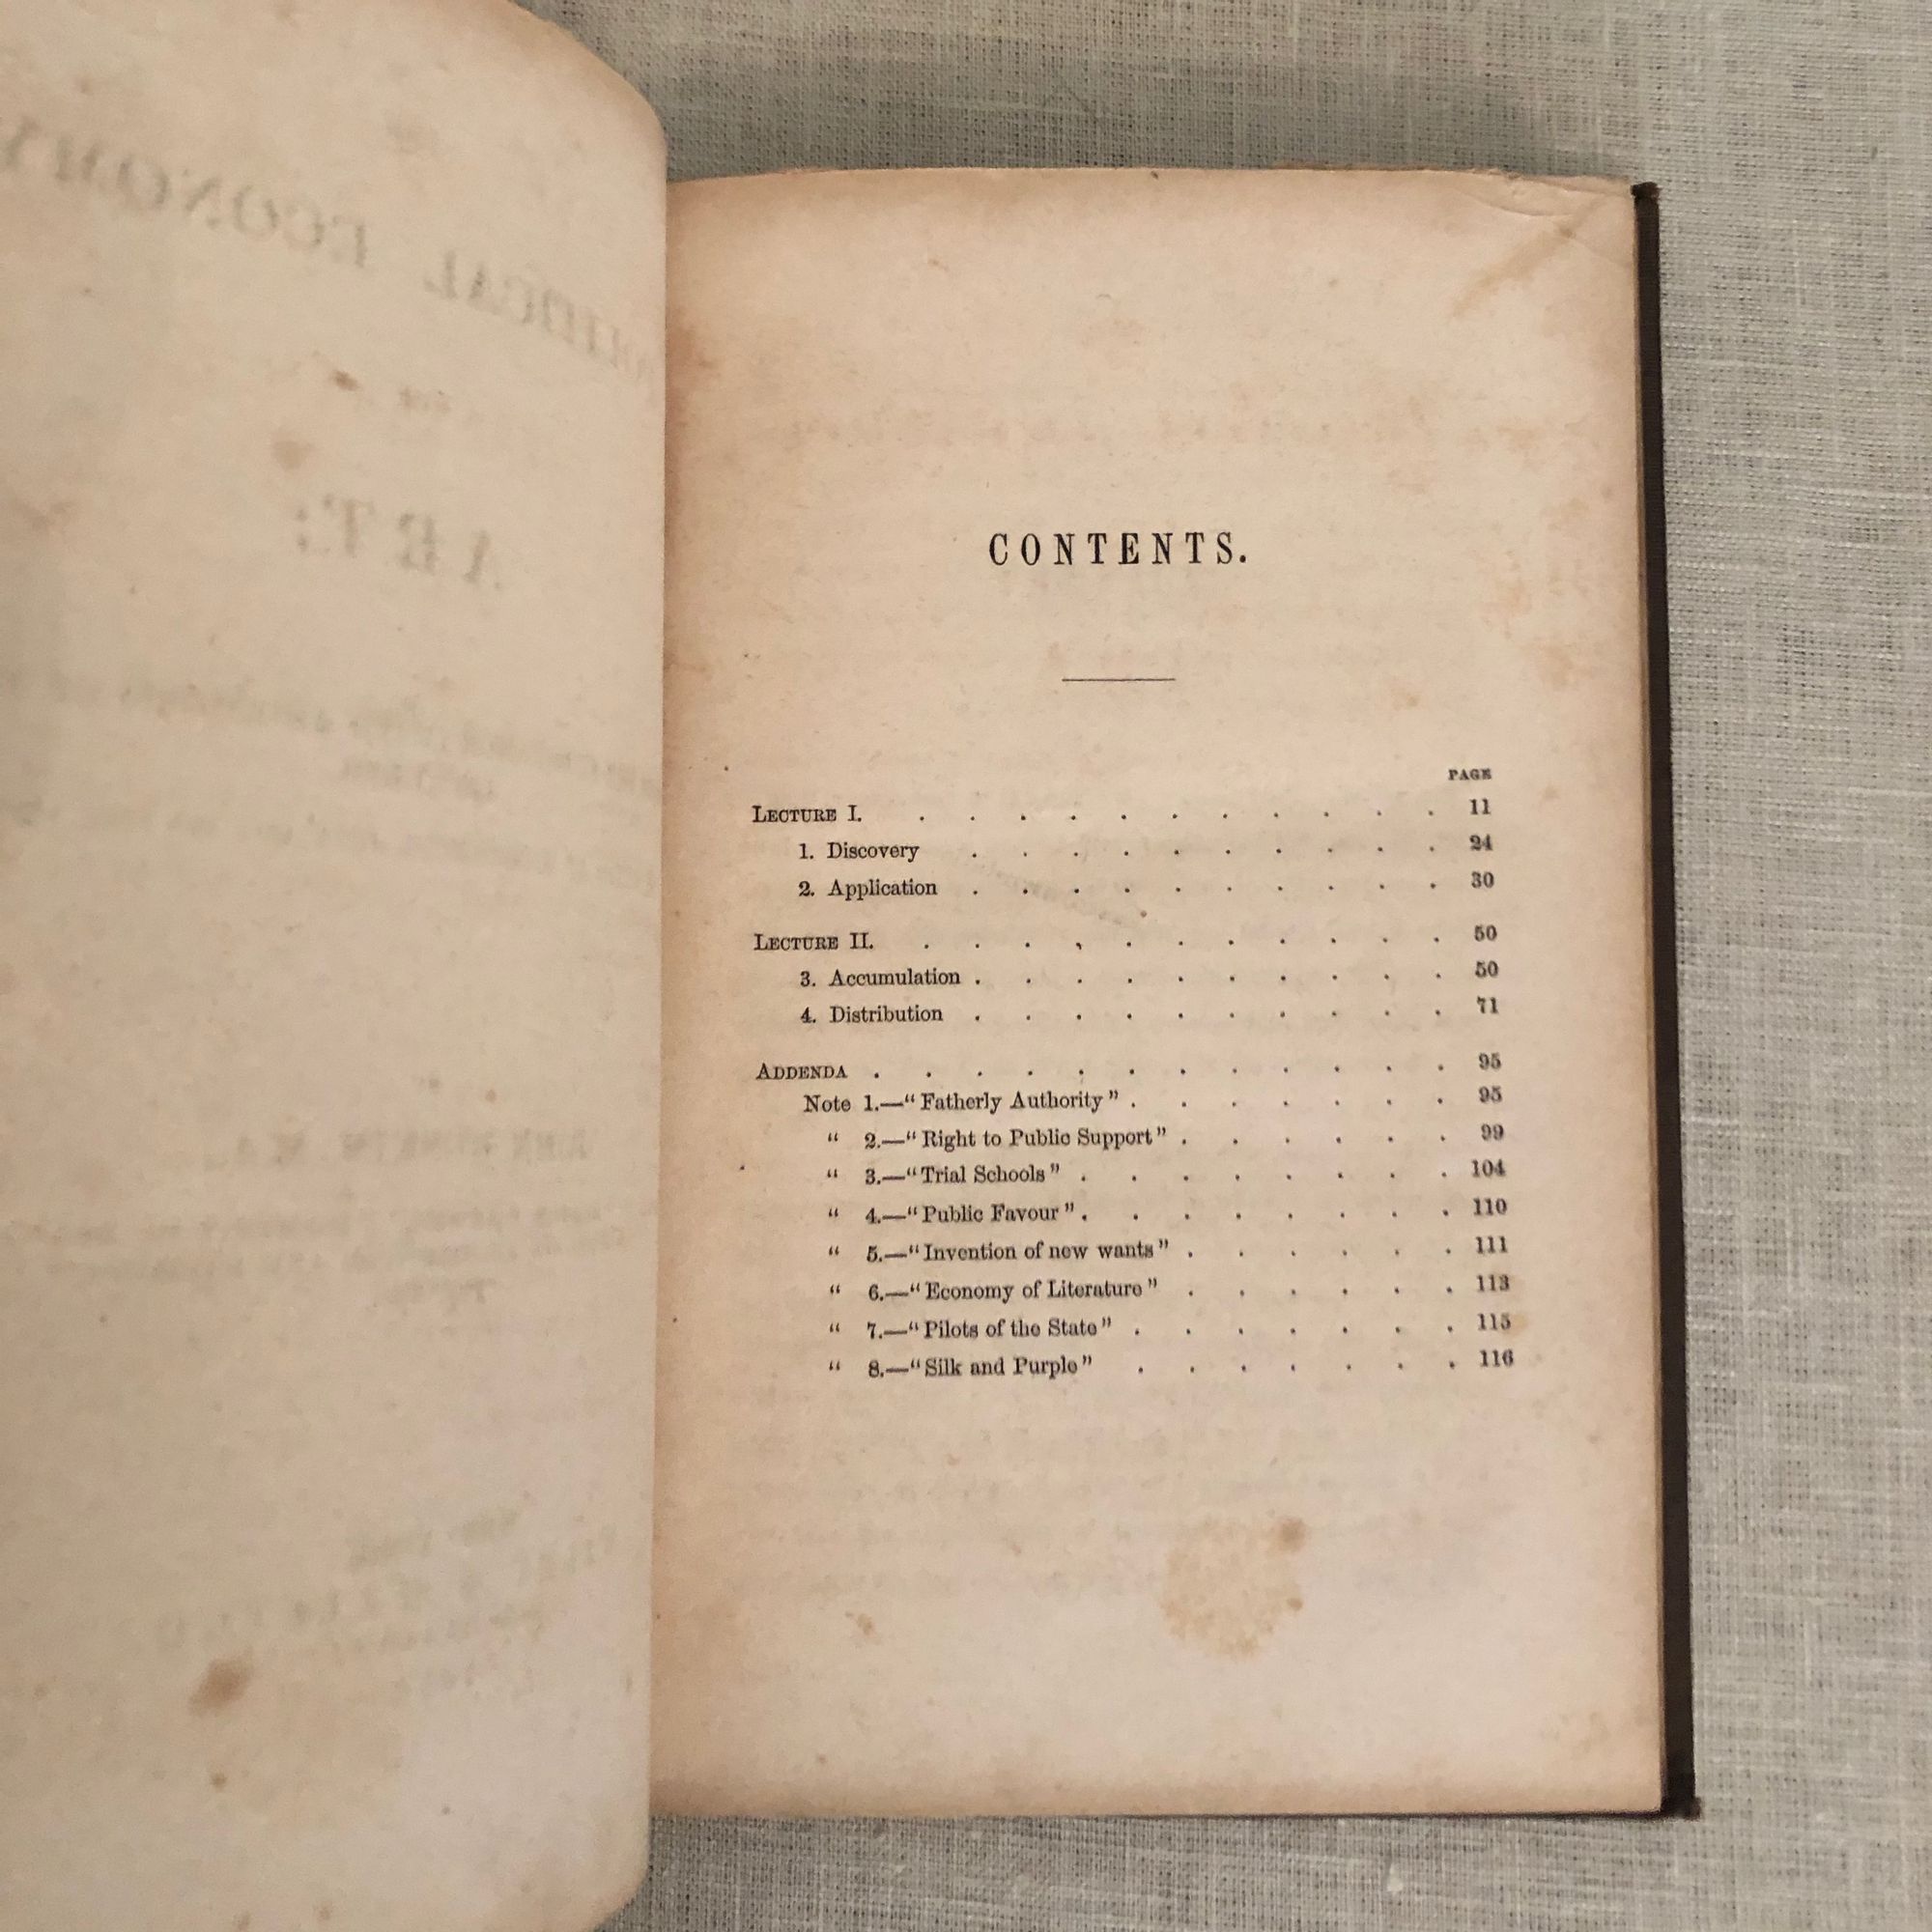 POLITICAL ECONOMY
OF
ART:
JOHN RUSKIN, M.A.,
CONTENTS.
PAGE
LECTURE I. . . . . . . . . . . . 11
1. Discovery . . . . . . . . . . 24
2. Application . . . . . . . . . . 30
LECTURE II. . . . . . . . . . . . 50
3. Accumulation . . . . . . . . . . 50
4. Distribution . . . . . . . . . . 71
ADDENDA . . . . . . . . . . . . 95
Note 1.—“Fatherly Authority” . . . . . . . 95
“ 2.—“Right to Public Support” . . . . . . 99
“ 3.—“Trial Schools” . . . . . . . . 104
“ 4.—“Public Favour” . . . . . . . . 110
“ 5.—“Invention of new wants” . . . . . . 111
“ 6.—“Economy of Literature” . . . . . . 113
“ 7.—“Pilots of the State” . . . . . . . 115
“ 8.—“Silk and Purple” . . . . . . . 116